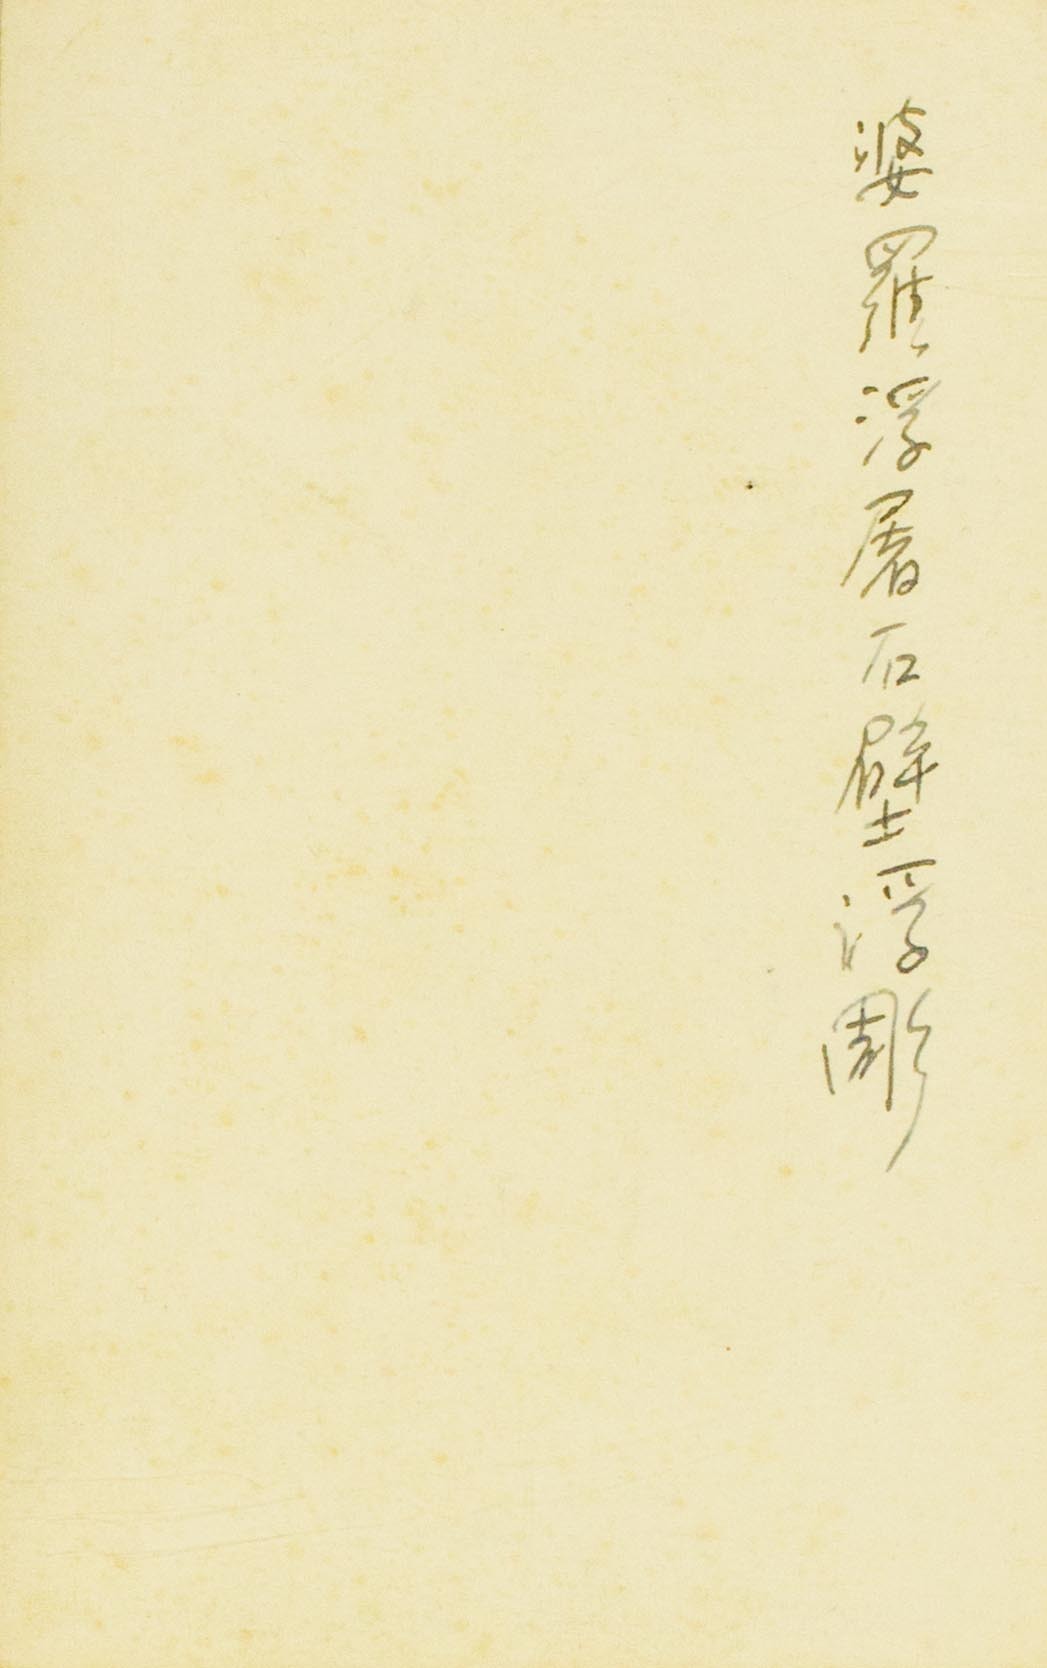 婆羅浮屠石壁浮彫